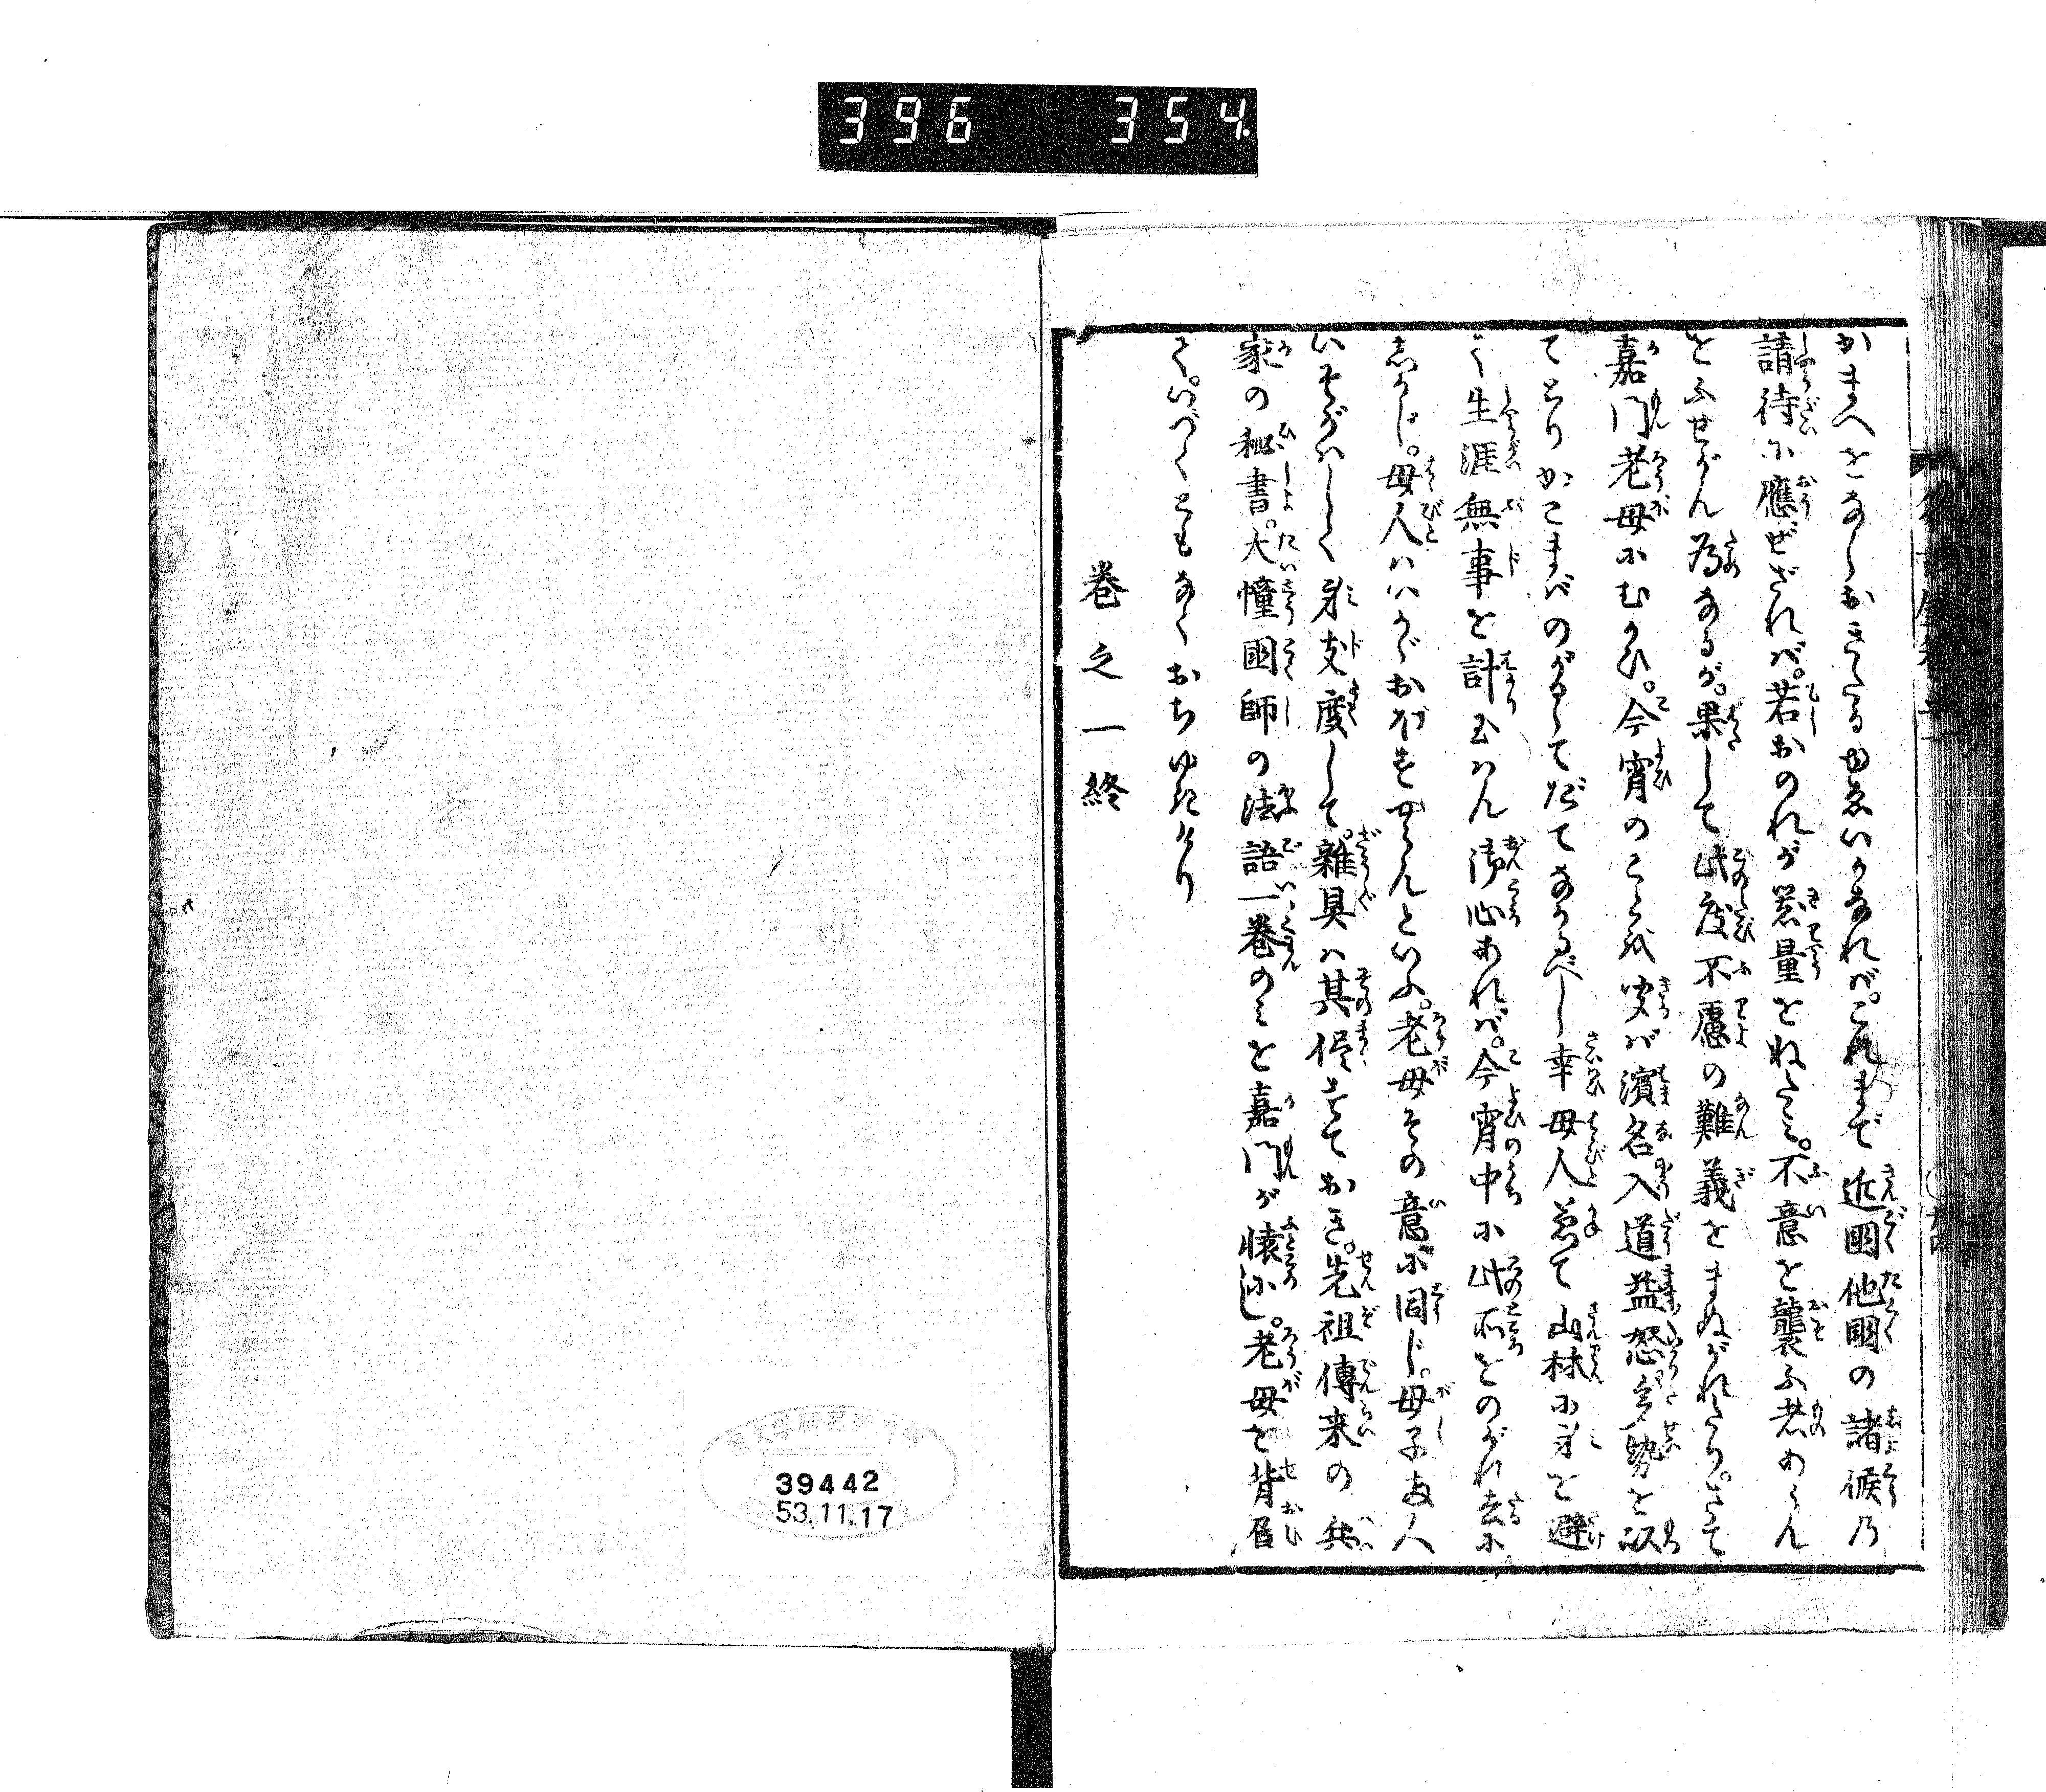 396 354
かまへをなしおきたるゆゑいかなれば。これまで近國他國の諸侯乃
請待に應ぜざれば。若おのれが器量をねたみ。不意を襲ふ者あらん
をふせがん為なるが。果して此度不慮の難義をまぬがれたり。さて
嘉門老母にむかひ。今宵のことを聞ば濱名入道益怒。多勢を以
てとりかこまばのがるゝてだてなかるべし幸母人兼て山林に身を避
て生涯無事を計玉はん御心あれば。今宵中に此所をのがれ去に
しかじ。母人はいかゞおぼし玉はんといふ。老母その意に同じ。母子両人
いそがはしく身支度して。雑具は其侭すておき。先祖傳来の兵
家の秘書。大幢國師の法語一巻のみを嘉門が懐にし。老母を背負
て。いづくともなくおちゆきけり
巻之一終
39442
53.11.17